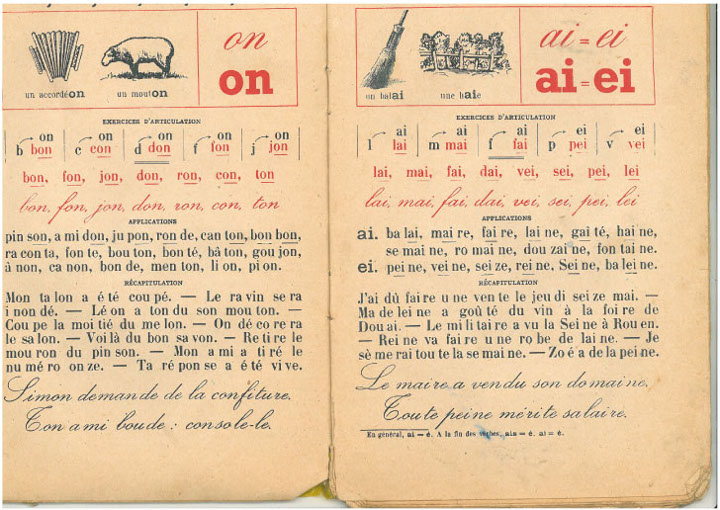 on
on
un accordéon
un mouton
EXERCICES D'ARTICULATION
on on on on on
b bon c con d don f fon j jon
bon, fon, jon, don, ron, con, ton
bon, fon, jon, don, ron, con, ton
APPLICATIONS
pin son, a mi don, ju pon, ron de, can ton, bon bon,
ra con ta, fon te, bou ton, bon té, bâ ton, gou jon,
à non, ca non, bon de, men ton, li on, pi on.
RÉCAPITULATION
Mon ta lon a é té cou pé. — Le ra vin se ra
i non dé. — Lé on a ton du son mou ton. —
Cou pe la moi tié du me lon. — On dé co re ra
le sa lon. — Voi là du bon sa von. — Re ti re le
mou ron du pin son. — Mon a mi a ti ré le
nu mé ro on ze. — Ta ré pon se a é té vi ve.
Simon demande de la confiture.
Ton ami boude : console-le.
ai = ei
ai = ei
un balai
une haie
EXERCICES D'ARTICULATION
ai ai ai ei ei
l lai m mai f fai p pei v vei
lai, mai, fai, dai, vei, sei, pei, lei
lai, mai, fai, dai, vei, sei, pei, lei
APPLICATIONS
ai. ba lai, mai re, fai re, lai ne, gai té, hai ne,
se mai ne, ro mai ne, dou zai ne, fon tai ne.
ei. pei ne, vei ne, sei ze, rei ne. Sei ne, ba lei ne.
RÉCAPITULATION
J'ai dû fai re u ne ven te le jeu di sei ze mai. —
Ma de lei ne a goû té du vin à la foi re de
Dou ai. — Le mi li tai re a vu la Sei ne à Rou en.
— Rei ne va fai re u ne ro be de lai ne. — Je
sè me rai tou te la se mai ne. — Zo é a de la pei ne.
Le maire a vendu son domaine.
Toute peine mérite salaire.
En général, ai = è. A la fin des verbes, ais = è. ai = é.